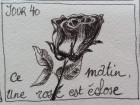 JOUR 40
Ce matin,
une rose est éclose